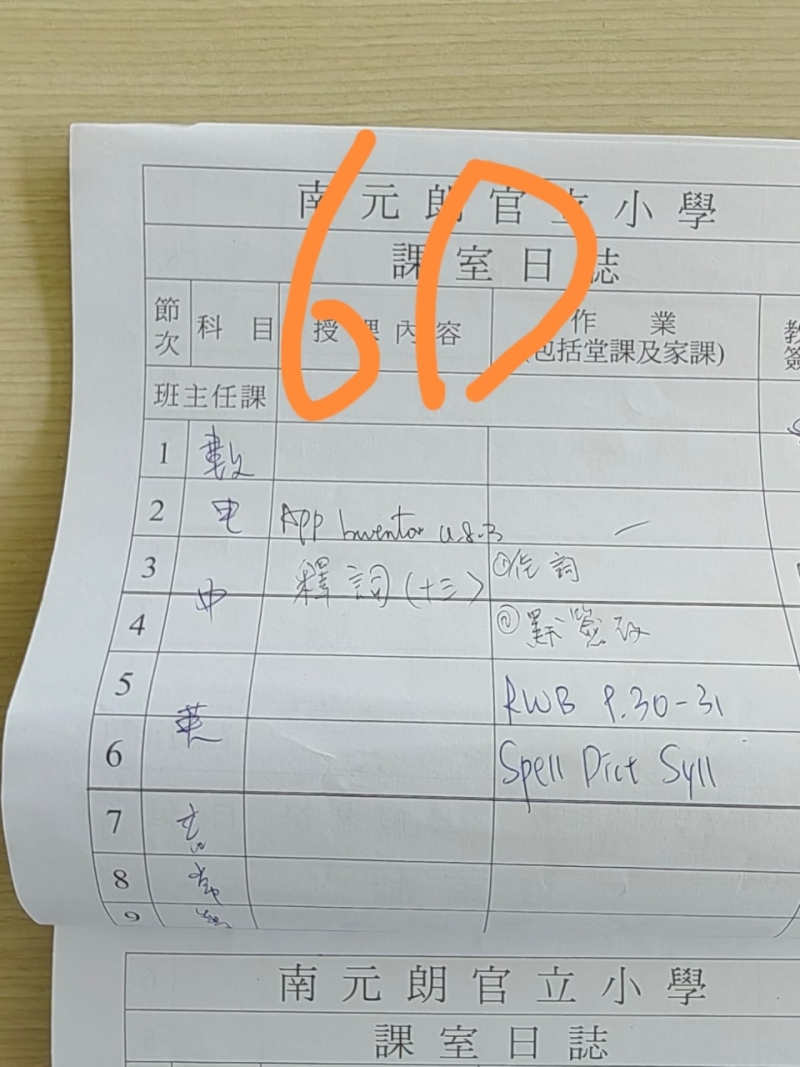 6D
南元朗官立小學
課室日誌
節次 科目 授課內容 作業
(包括堂課及家課)
班主任課
1 數
2 电 App Inventor
3 中 釋詞(十三) ①
4 ②
5 英 RWB P.30-31
6 Spell Dict Syll
7
8 常
9
南元朗官立小學
課室日誌